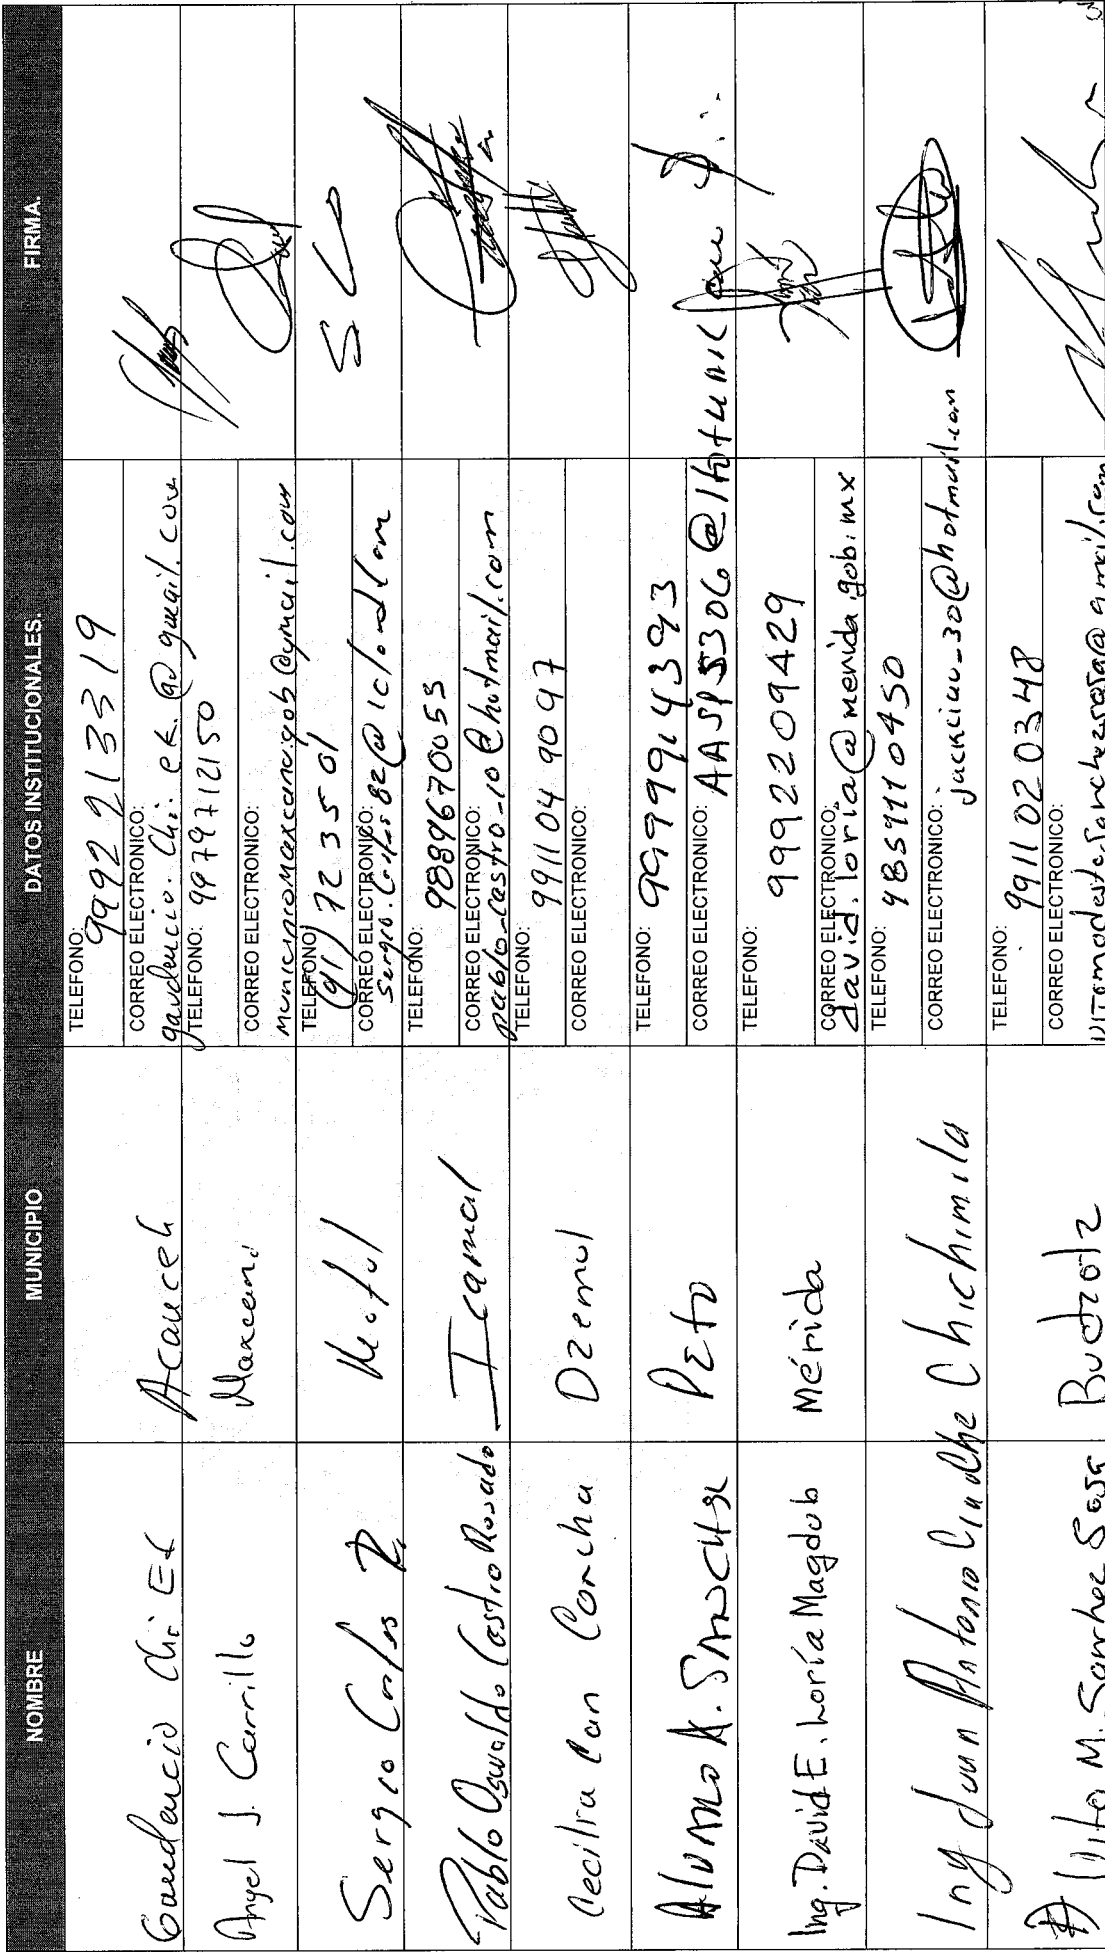 NOMBRE MUNICIPIO DATOS INSTITUCIONALES. FIRMA.
Gaudencio Chi Ek Acanceh TELEFONO: 9992 213319
CORREO ELECTRONICO: gaudencio.chi.ek.@gmail.com
Angel J. Carrillo Maxcanú TELEFONO: 9979712150
CORREO ELECTRONICO: municipiomaxcanugob@gmail.com
Sergio Cortes R. Motul TELEFONO: (91) 7235 01
CORREO ELECTRONICO: sergio.cortes82@icloud.com
Pablo Oswaldo Castro Rosado Izamal TELEFONO: 9889670055
CORREO ELECTRONICO: pablo_castro_10@hotmail.com
Cecilia Can Concha Dzemul TELEFONO: 9911 04 9097
CORREO ELECTRONICO:
Alvaro A. Sanchez Peto TELEFONO: 9999914393
CORREO ELECTRONICO: AASP5306@
Ing. David E. Loría Magdub Mérida TELEFONO: 9992209429
CORREO ELECTRONICO: david.loria@merida.gob.mx
Ing Juan Antonio Ciau Che Chichimila TELEFONO: 9859710450
CORREO ELECTRONICO: jackciau_30@hotmail.com
Vito M. Sanchez Sosa Buctzotz TELEFONO: 9911 02 0348
CORREO ELECTRONICO: vitomodestosanchezsosa@gmail.com